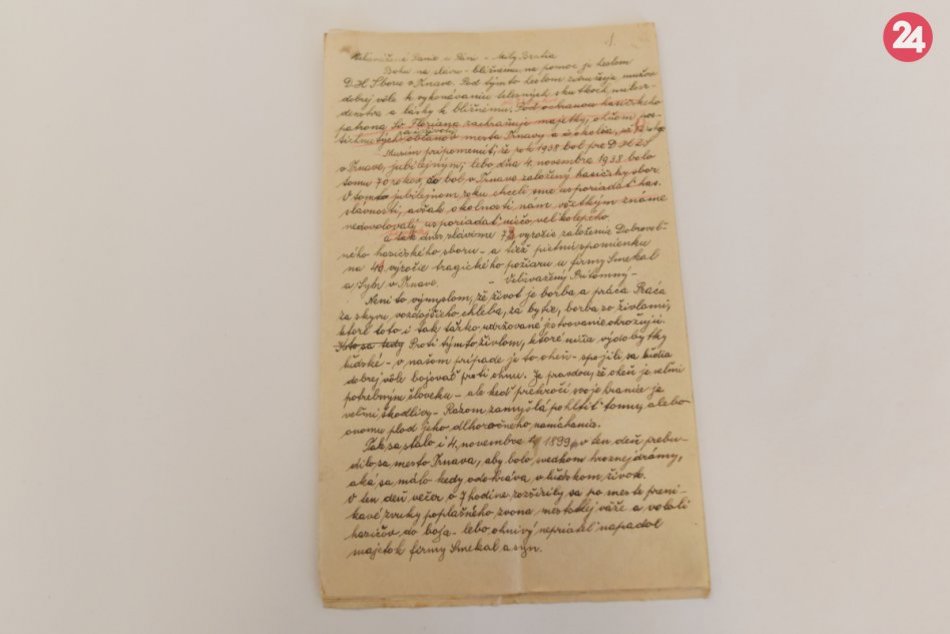 24
1.
Velavážené Panie i Páni - Milý Bratia
Bohu na slávu - bližnému na pomoc je heslom
D. H. Sboru v Trnave. Pod týmto heslom združujú mužov
dobrej vôle k vykonávaniu telesných skutkoch milosr-
denstva a lásky k bližnému. Pod ochranou hasičského
patrona Sv. Floriana zachraňuje majetky, ohňom po-
a životy
stihnutých občanov mesta Trnavy a okolia,
Musím pripomenúť, že rok 1938 bol pre D. H. Z.
v Trnave, jubilejným, lebo dňa 4. novembra 1938 bolo
tomu 70 rokov, čo bol v Trnave založený hasičský sbor.
V tomto jubilejnom roku chceli sme usporiadať has.
slávnosti, avšak okolnosti nám všetkým známe
nedovoľovaly usporiadať niečo veľkolepého.
a tak dnes slávime výročie založenia Dobrovoľ-
ného hasičského sboru - a tiež pietnu spomienku
na výročie tragického požiaru u firmy Smekal
a Syn v Trnave. - Velevážený Prítomný -
Není to výmyslom, že život je borba a práca. Práca
za skyvu vozdajšieho chleba, za bytie, borba so živlami,
ktoré toto i tak ťažko udržované jestvovanie ohrožujú.
Kto sa tedy Proti týmto živlom, ktoré ničia výdobytky
ľudské - v našom prípade je to oheň - spojili sa ľudia
dobrej vôle bojovať proti ohnu. Je pravdou, že oheň je veľmi
potrebným človeku - ale keď prekročí svoje hranice je
veľmi škodlivý - Razom zamýšľa pohltiť tomu, alebo
onomu plod jeho dlhoročného namáhania.
Tak sa stálo i 4. novembra 1899, v ten deň prebu-
dilo sa mesto Trnava, aby bolo svedkom hroznej drámy,
aká sa málo kedy odohráva v ľudskom živote.
V ten deň večer o 7 hodine rozšírily sa po meste preni-
kavé zvuky poplašného zvona mestskej väže a volali
hasičov do boja - lebo ohnivý nepriateľ napadol
majetok firmy Smekal a syn.